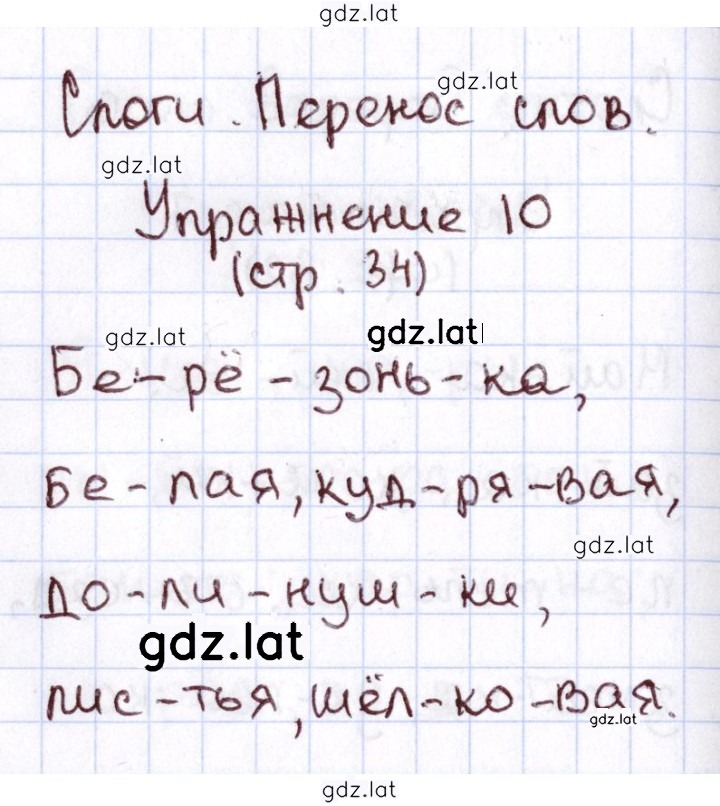 gdz.lat
gdz.lat
Слоги. Перенос слов.
gdz.lat
Упражнение 10
(стр. 34)
gdz.lat
gdz.lat
Бе-рё-зонь-ка,
бе-лая, куд-ря-вая,
gdz.lat
до-ли-нуш-ки,
gdz.lat
лис-тья, шёл-ко-вая.
gdz.lat
gdz.lat